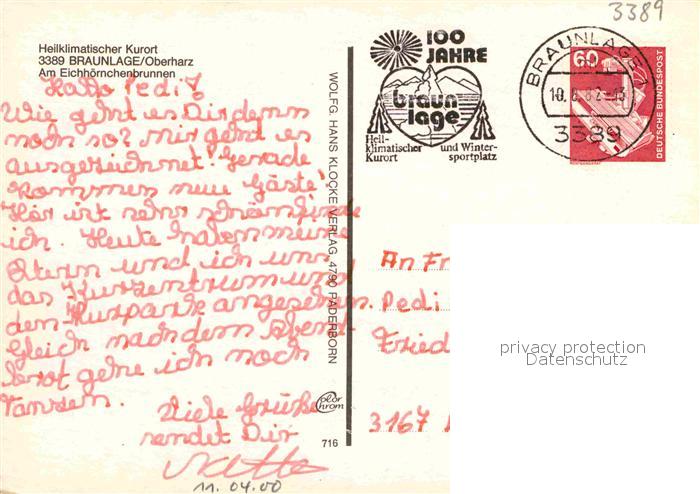 3389
Heilklimatischer Kurort
3389 BRAUNLAGE/Oberharz
Am Eichhörnchenbrunnen
Hallo Pedi!
Wie geht es Dir denn
noch so? Mir geht es
ausgezeichnet! Gerade
kommen neue Gäste!
Hier ist sehr schön finde
ich. Heute haben meine
Eltern und ich uns
das Kurzentrum und
den Kurpark angesehen.
Gleich nach dem Abend-
brot gehe ich noch
tanzen.
Viele Grüße
sendet Dir
11.04.00
WOLFG. HANS KLOCKE VERLAG, 4790 PADERBORN
color chrom
716
100
JAHRE
braun
lage
Heil-
klimatischer
Kurort
und Winter-
sportplatz
BRAUNLAGE 1
3389
60
DEUTSCHE BUNDESPOST
An Fr
Pedi
Fried
3167
privacy protection
Datenschutz